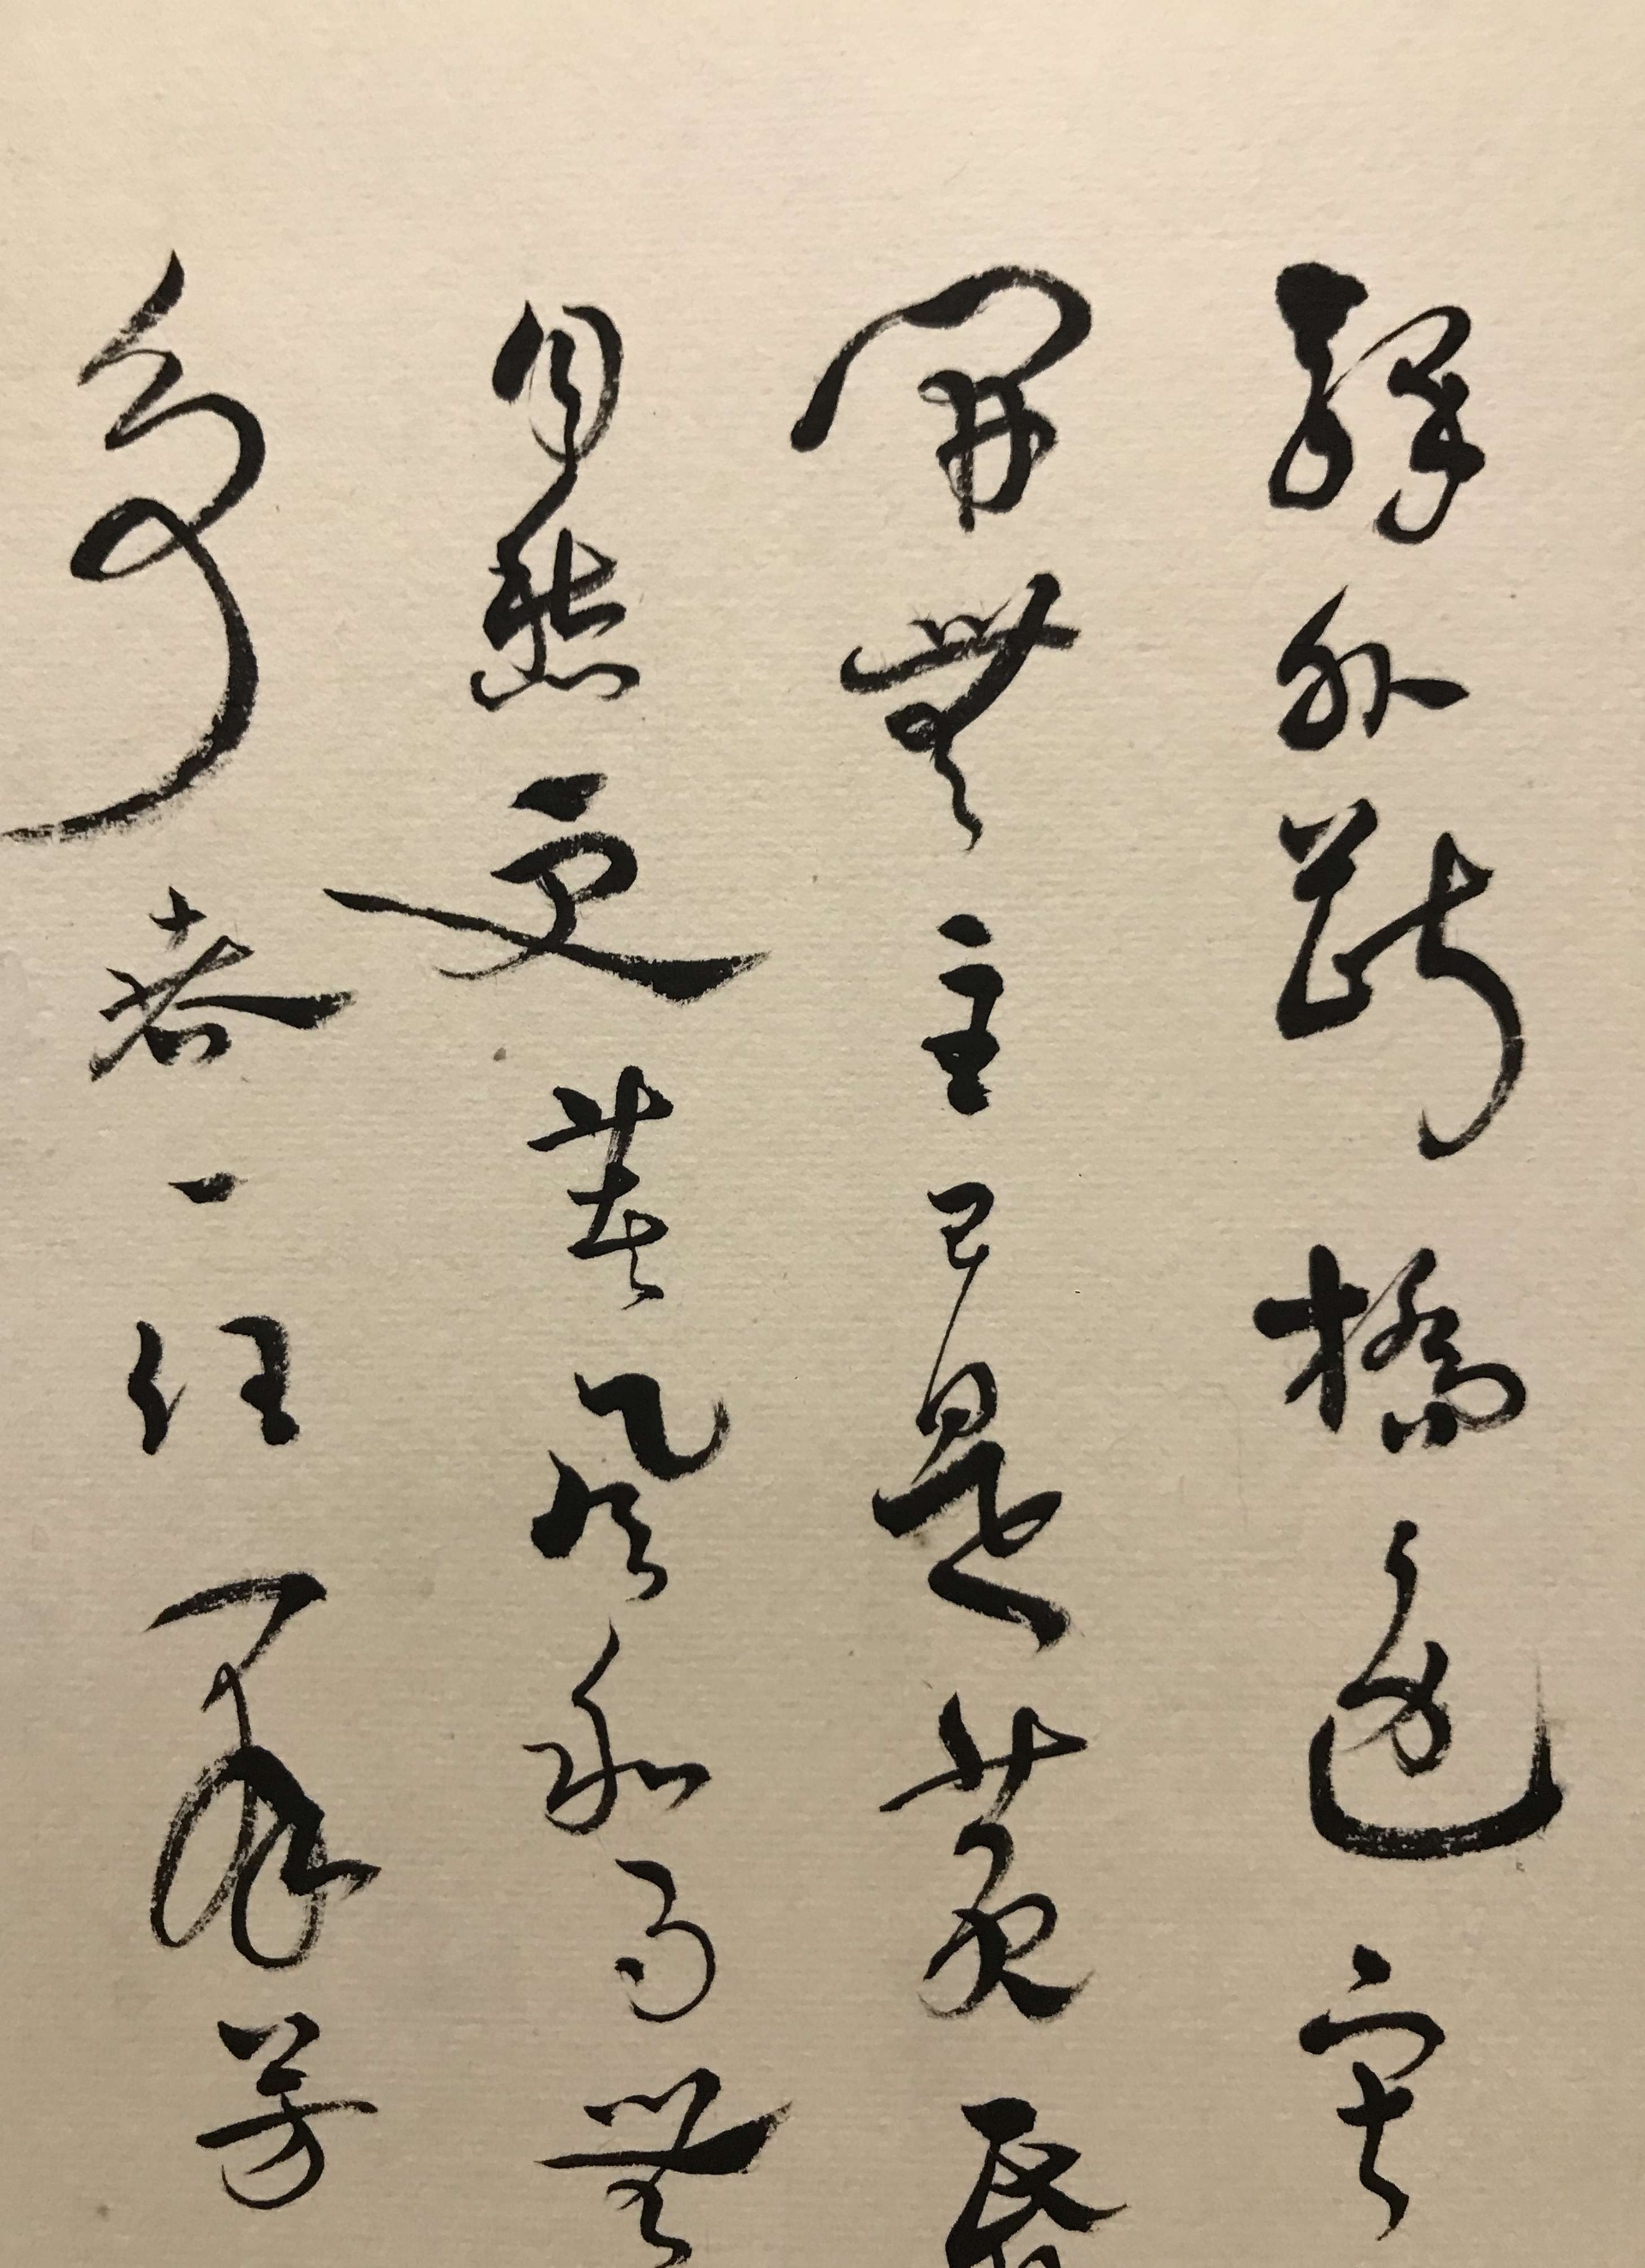 驛外斷橋邊寂
開無主已是黃昏
自愁更著風和雨無
爭春一任羣芳